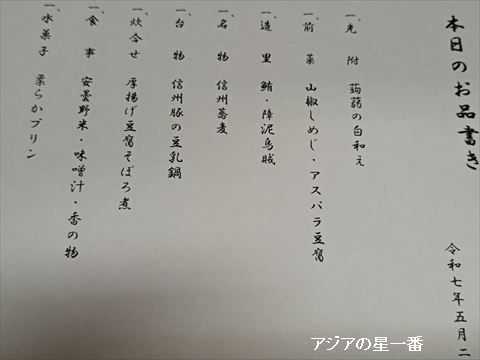 本日のお品書き
令和七年五月二
一、先 附 蒟蒻の白和え
一、前 菜 山椒しめじ・アスパラ豆腐
一、造 里 鮪・障泥烏賊
一、名 物 信州蕎麦
一、台 物 信州豚の豆乳鍋
一、炊合せ 厚揚げ豆腐そぼろ煮
一、食 事 安曇野米・味噌汁・香の物
一、水菓子 柔らかプリン
アジアの星一番